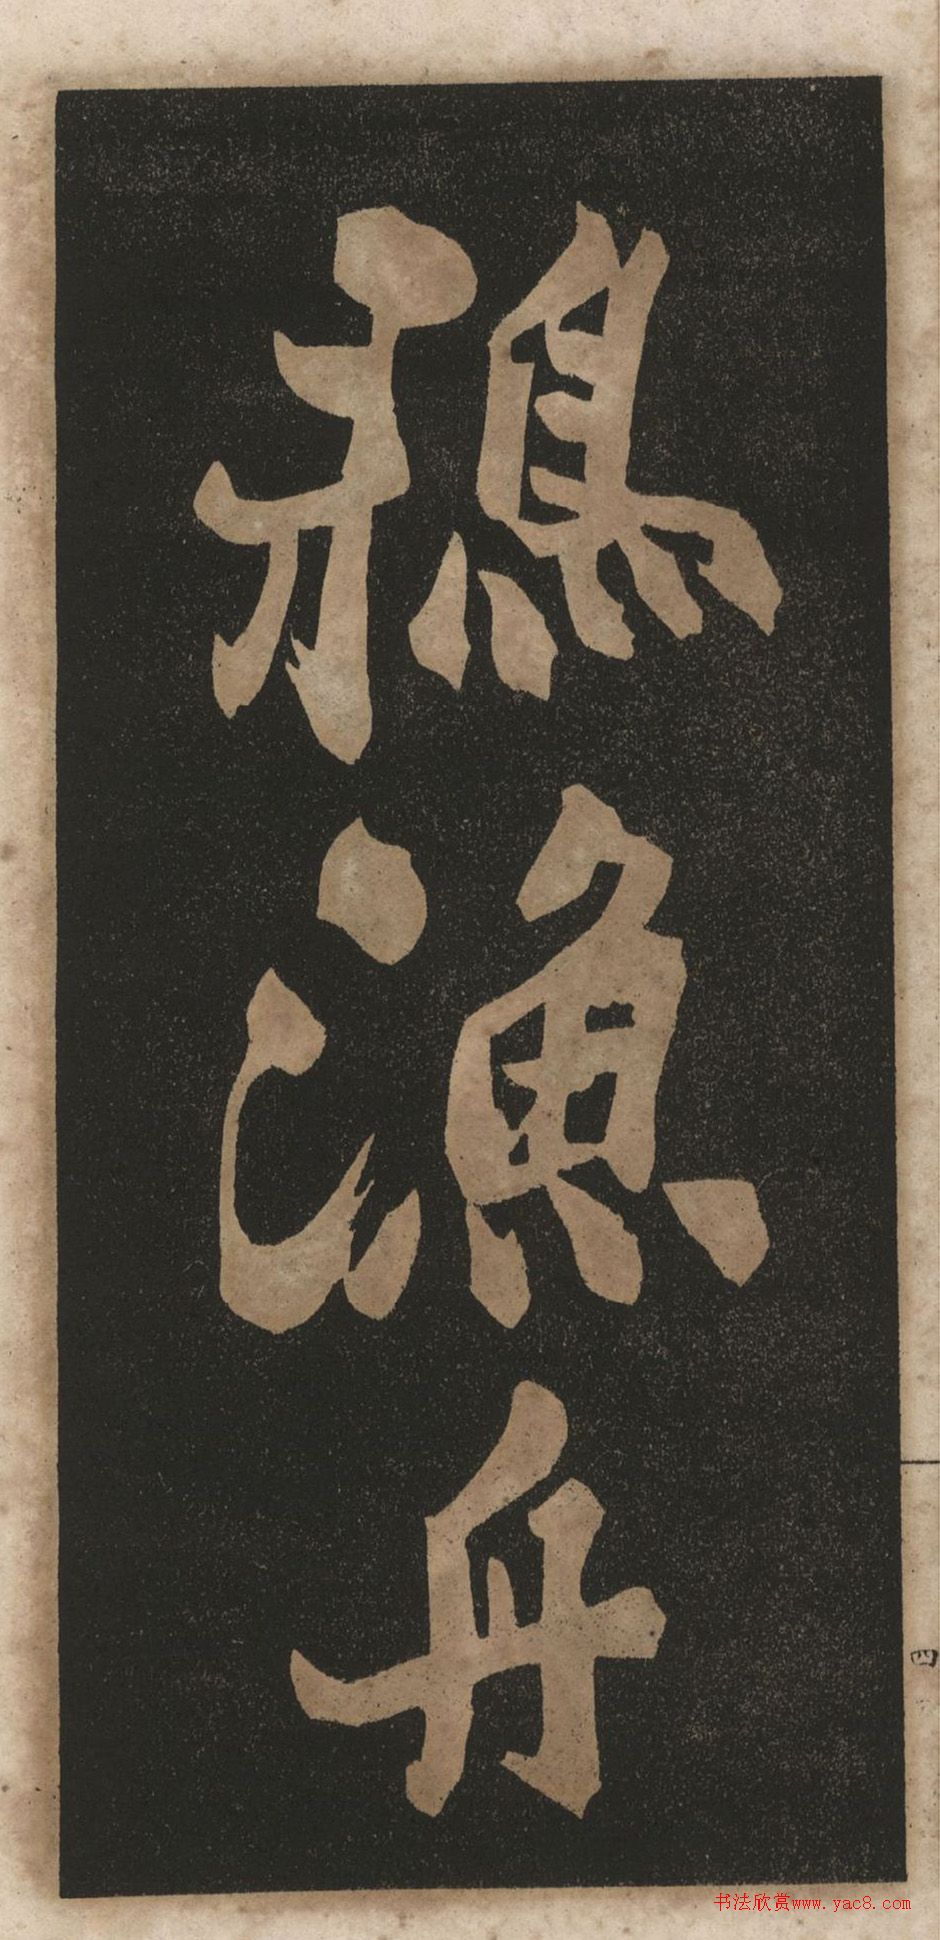 鴉
漁
舟
四
书法欣赏www.yac8.com